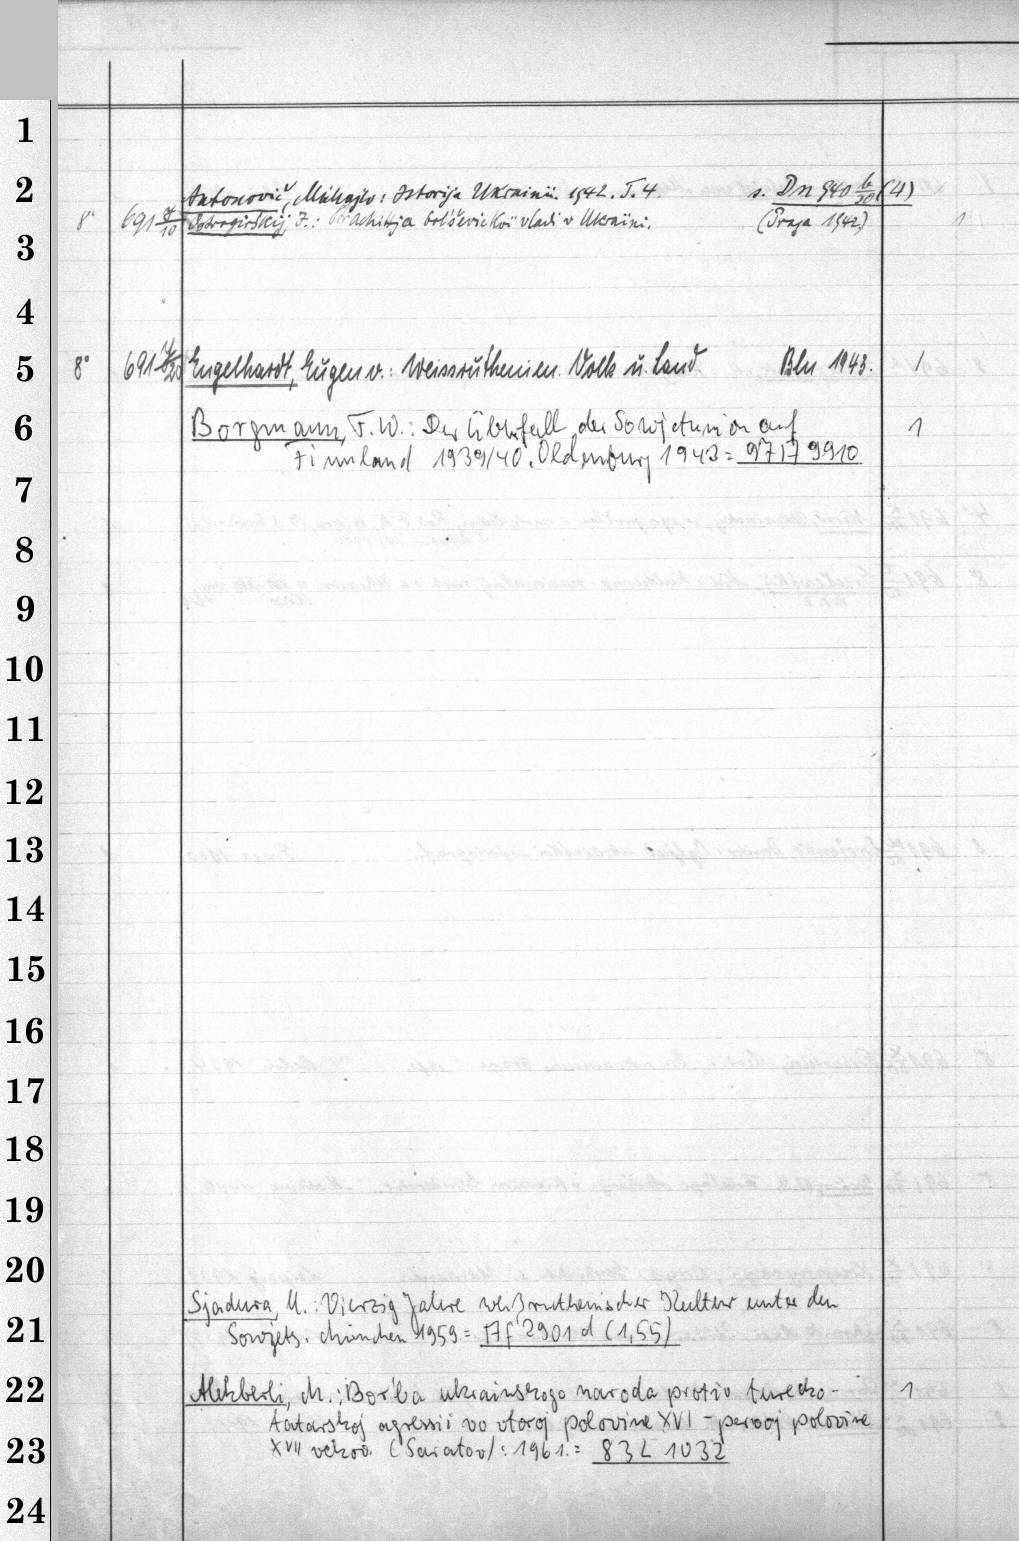 1
2
Antonovič, Mihajlo: Istorija Ukraini. 1942. T. 4. s. Dn 940 6/50 (4)
8° 691 Z.: bolševickoi vladi v Ukraini. (Praga 1942) 1
3
4
5
8° 691 Engelhardt, Eugen v.: Weissruthenien. Volk u. Land Bln 1943. 1
6
Borgmann, F. W.: Der Überfall der Sowjetunion auf 1
Finnland 1939/40. Oldenburg 1943 = 9717 9910
7
8
9
10
11
12
13
14
15
16
17
18
19
20
Sjadura, M.: Vierzig Jahre weißruthenischer Kultur unter den
21
Sowjets. München 1959 = Af 2901 d (1,55)
22
Alekberli, M.: Bor'ba ukrainskogo naroda protiv turecko- 1
tatarskoj agressii vo vtoroj polovine XVI - pervoj polovine
23
XVII vekov. (Saratov): 1961. = 83 L 1032
24